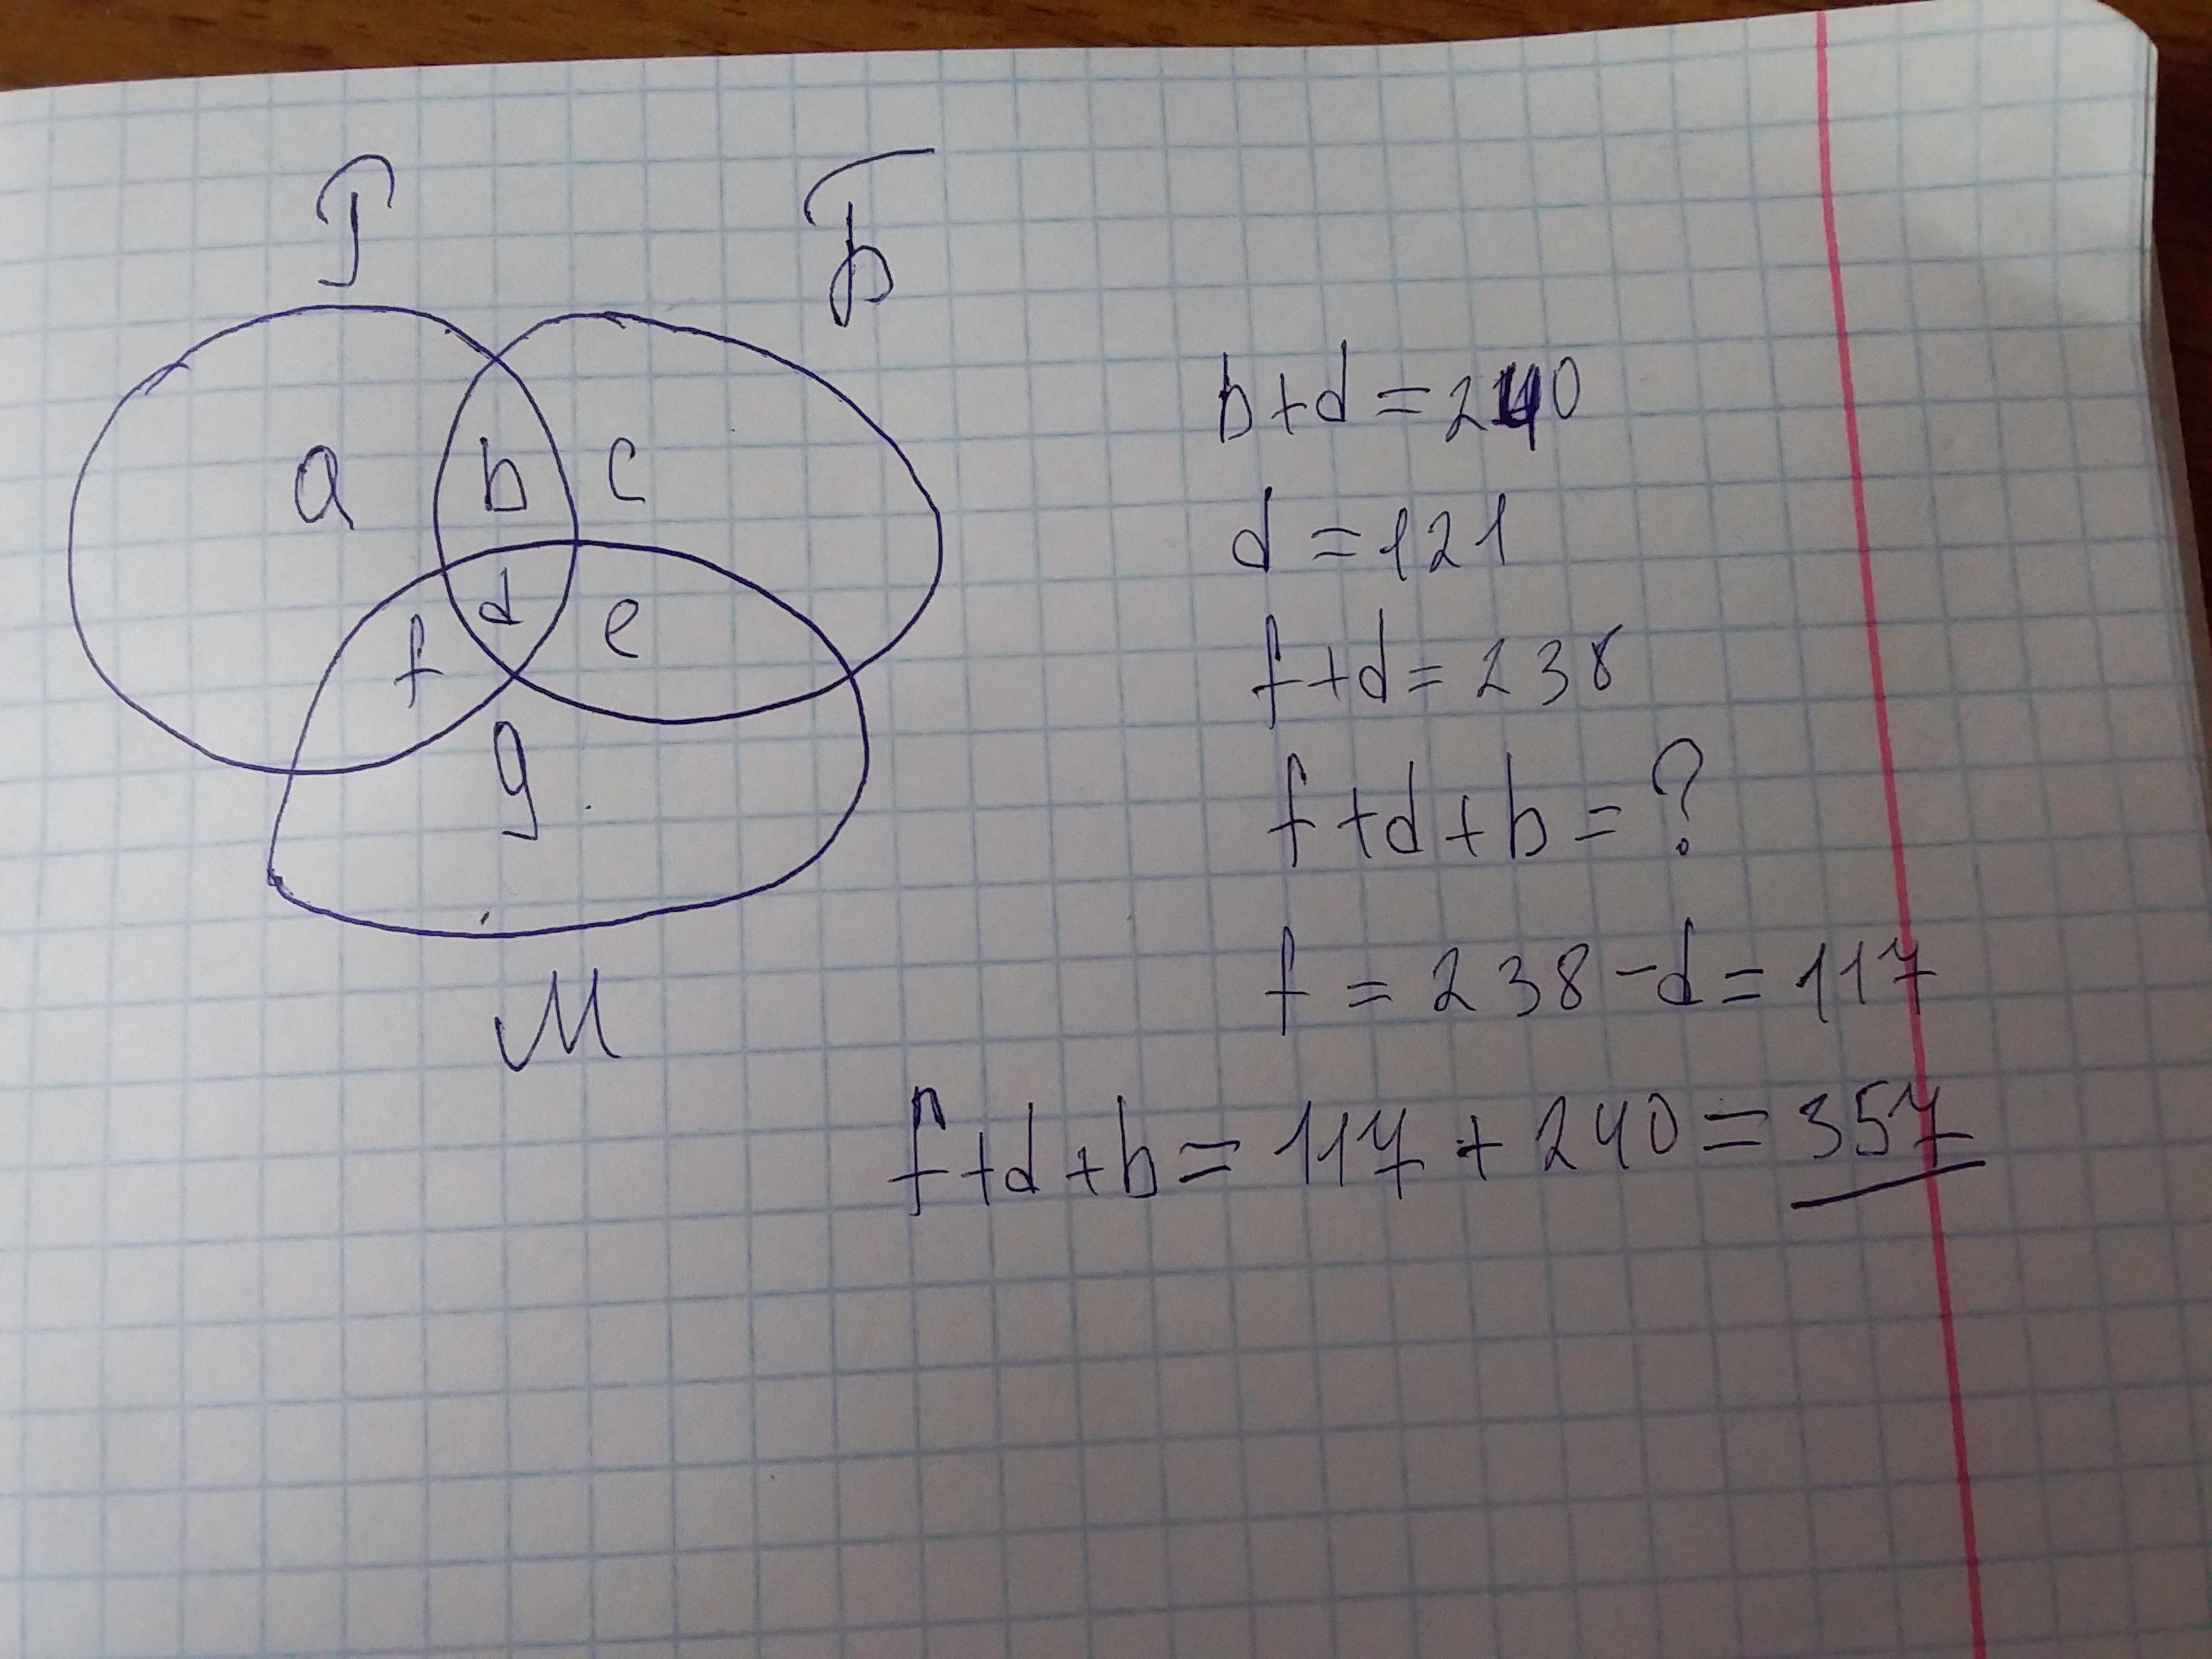 Р Б
a b c
f d e
g
М
b+d=240
d=121
f+d=238
f+d+b=?
f=238-d=117
f+d+b=117+240=357